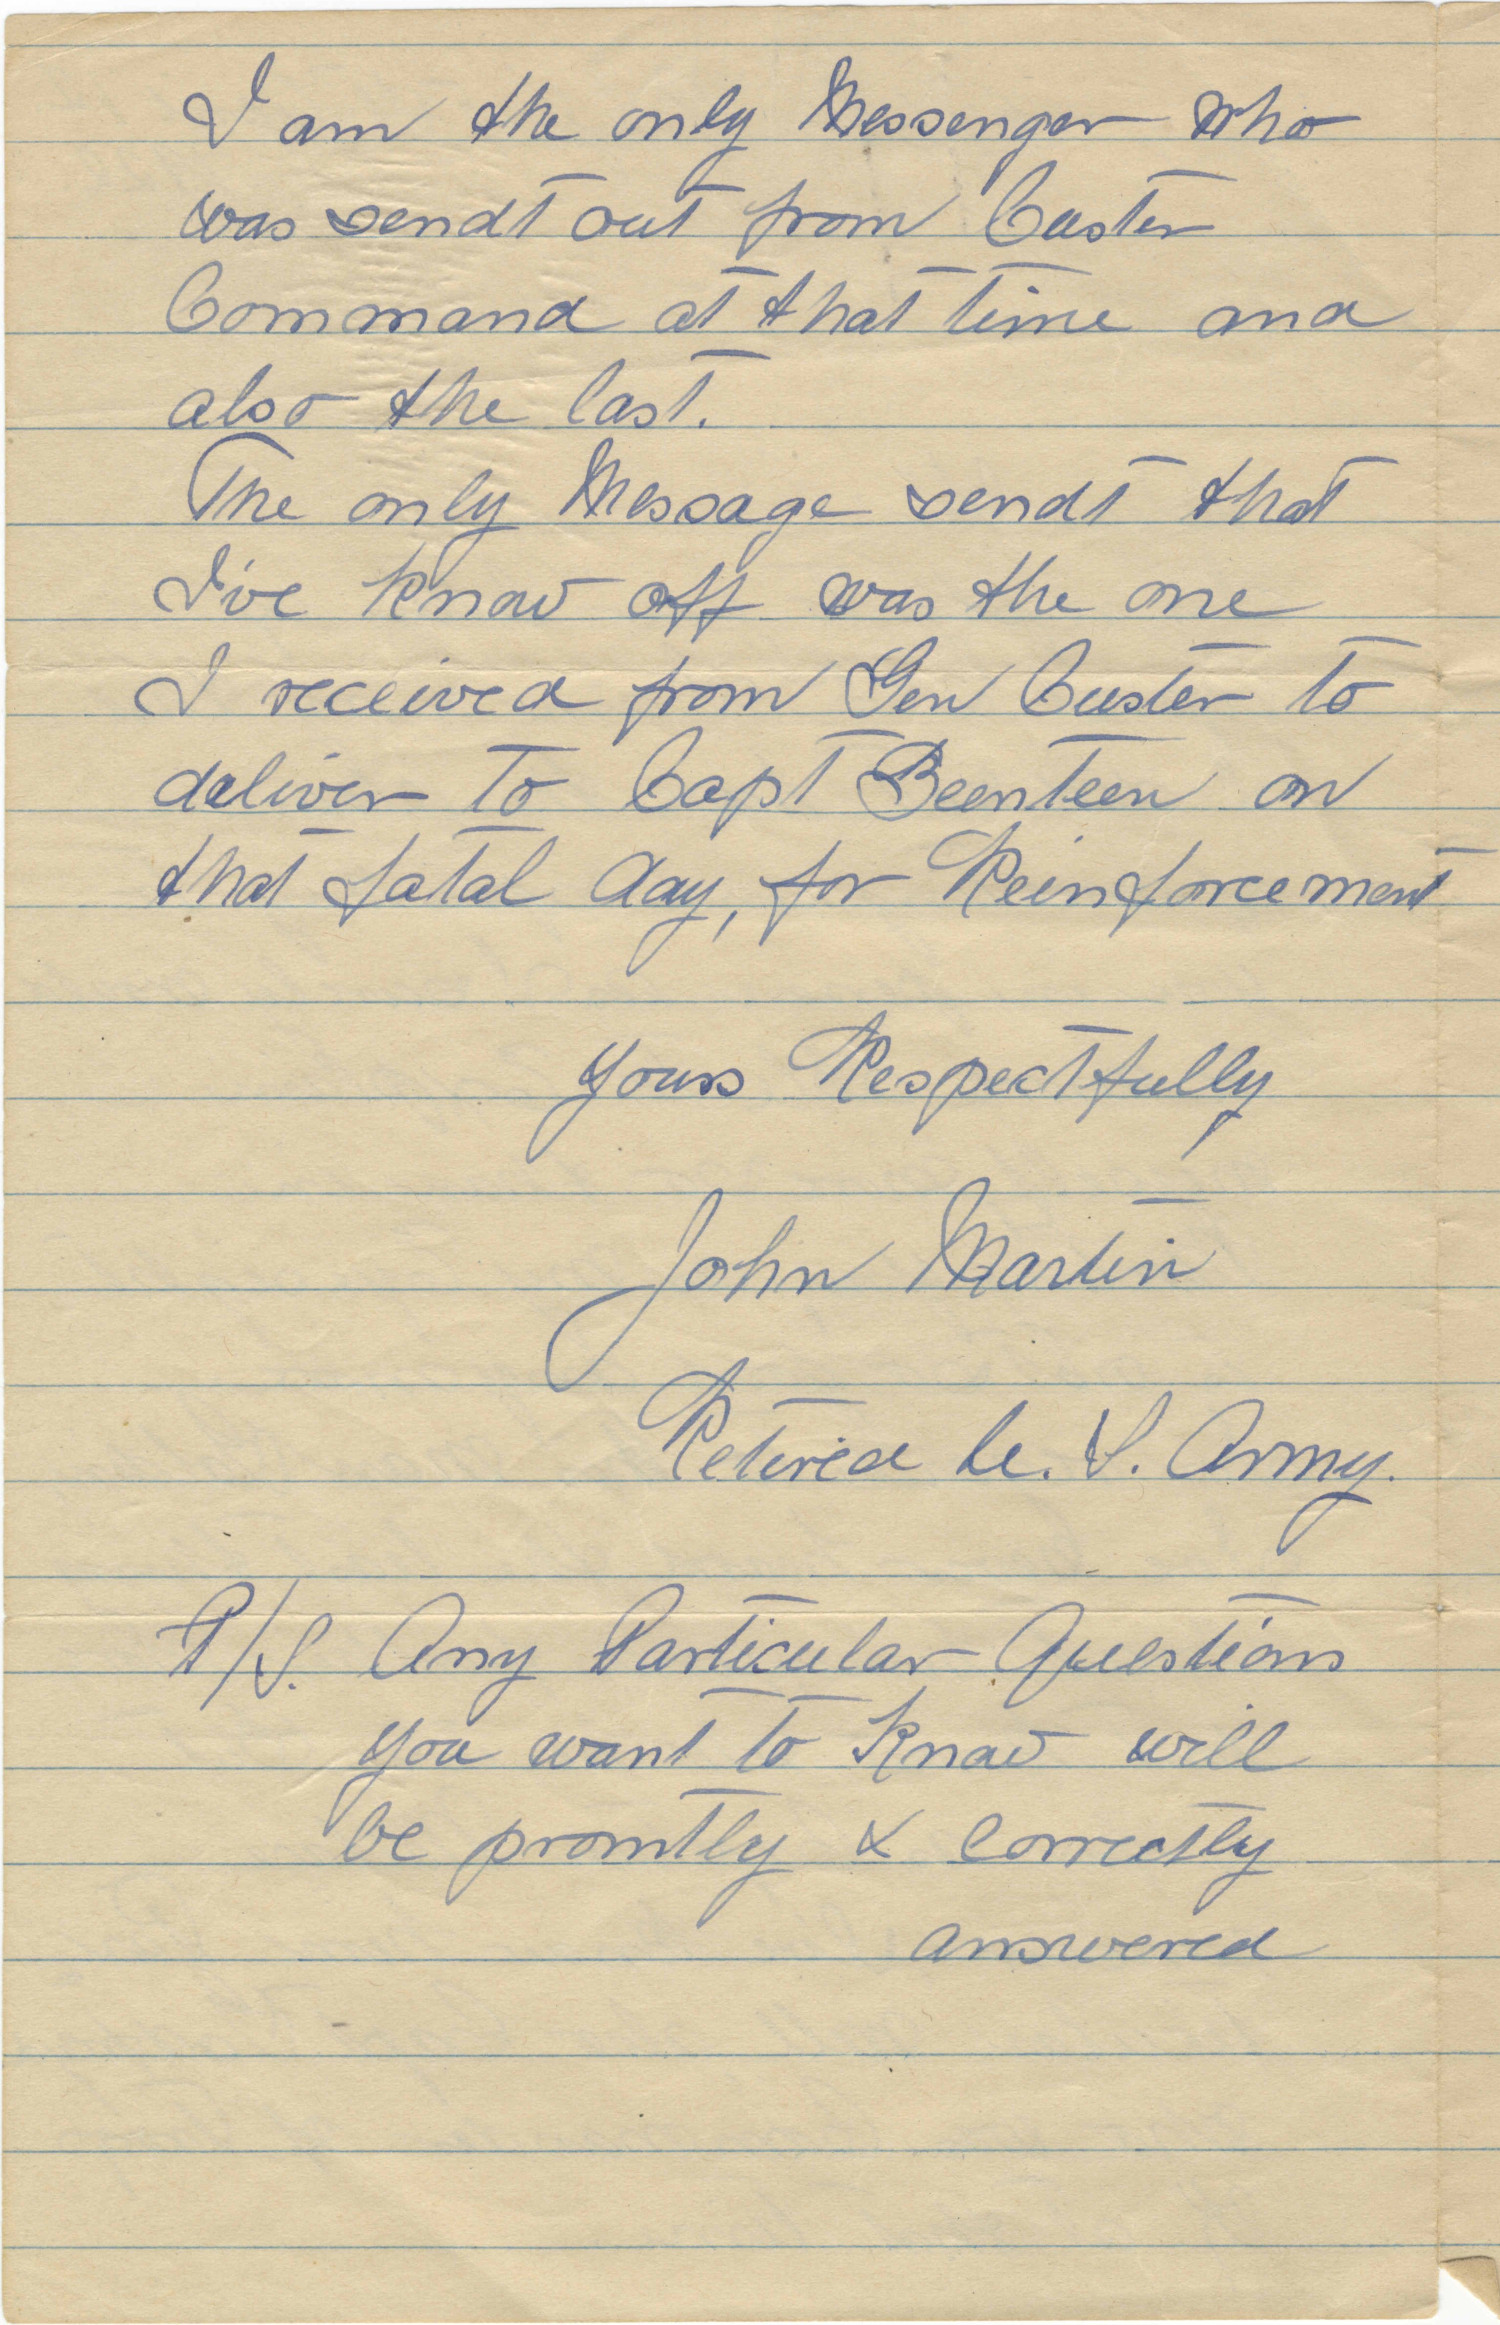 I am the only Messenger who
was sendt out from Custer
Command at that time and
also the last.
The only Message sendt that
I've know off was the one
I received from Gen Custer to
deliver to Capt Beenteen on
that fatal day, for Reinforcement
Yours Respectfully,
John Martin
Retired U. S. Army.
P/S. Any Particular Questions
you want to Know will
be promtly & Correctly
answered